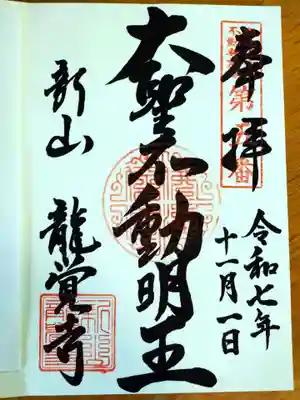 奉拝
令和七年
十一月一日
大聖不動明王
新山 龍覚寺